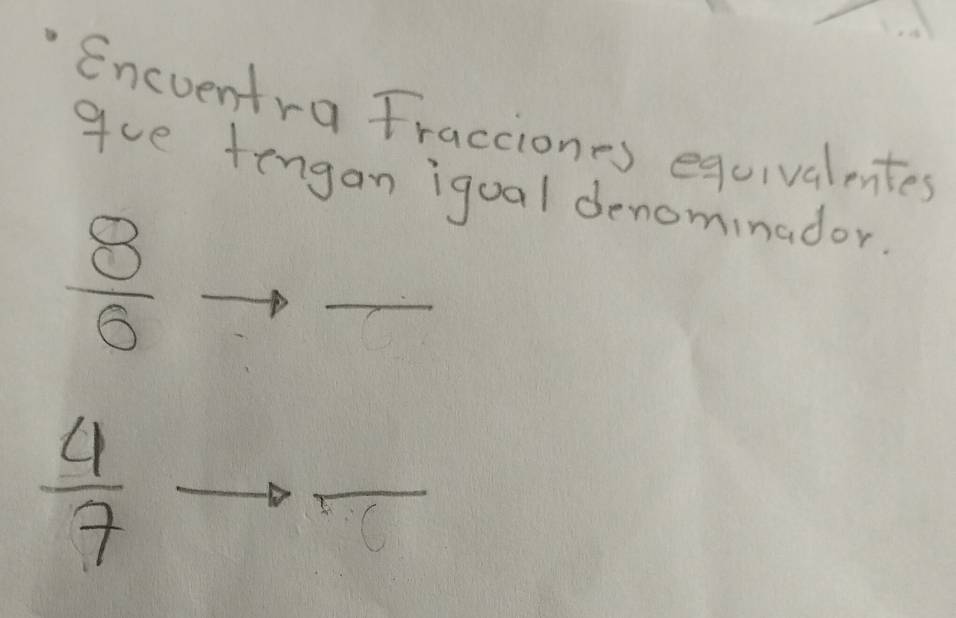 · Encuentra Fracciones equivalentes
que tengan igual denominador.
8
6
4
7